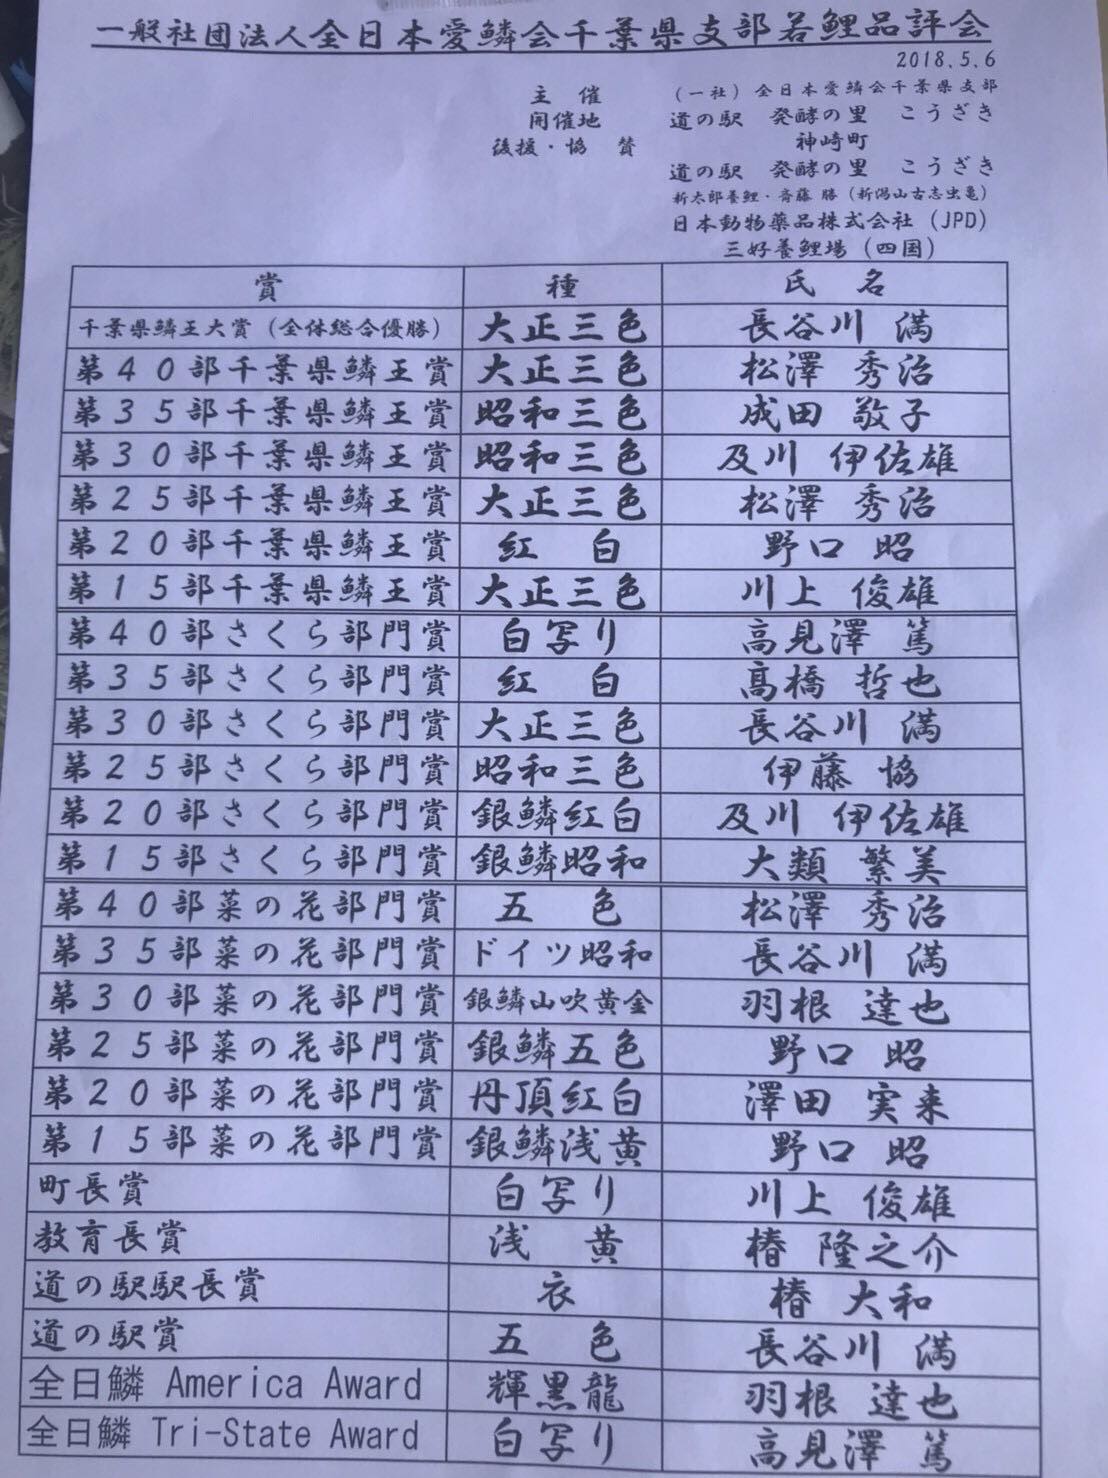 一般社団法人全日本愛鱗会千葉県支部若鯉品評会
2018.5.6
主　催　（一社）全日本愛鱗会千葉県支部
開催地　道の駅　発酵の里　こうざき
後援・協　賛　神崎町
道の駅　発酵の里　こうざき
新太郎養鯉・斉藤 勝（新潟山古志虫亀）
日本動物薬品株式会社（JPD）
三好養鯉場（四国）
賞　種　氏　名
千葉県鱗王大賞（全体総合優勝）　大正三色　長谷川 満
第４０部千葉県鱗王賞　大正三色　松澤 秀治
第３５部千葉県鱗王賞　昭和三色　成田 敬子
第３０部千葉県鱗王賞　昭和三色　及川 伊佐雄
第２５部千葉県鱗王賞　大正三色　松澤 秀治
第２０部千葉県鱗王賞　紅　白　野口 昭
第１５部千葉県鱗王賞　大正三色　川上 俊雄
第４０部さくら部門賞　白写り　高見澤 篤
第３５部さくら部門賞　紅　白　髙橋 哲也
第３０部さくら部門賞　大正三色　長谷川 満
第２５部さくら部門賞　昭和三色　伊藤 協
第２０部さくら部門賞　銀鱗紅白　及川 伊佐雄
第１５部さくら部門賞　銀鱗昭和　大類 繁美
第４０部菜の花部門賞　五　色　松澤 秀治
第３５部菜の花部門賞　ドイツ昭和　長谷川 満
第３０部菜の花部門賞　銀鱗山吹黄金　羽根 達也
第２５部菜の花部門賞　銀鱗五色　野口 昭
第２０部菜の花部門賞　丹頂紅白　澤田 実来
第１５部菜の花部門賞　銀鱗浅黄　野口 昭
町長賞　白写り　川上 俊雄
教育長賞　浅　黄　椿 隆之介
道の駅駅長賞　衣　椿 大和
道の駅賞　五　色　長谷川 満
全日鱗 America Award　輝黒龍　羽根 達也
全日鱗 Tri-State Award　白写り　高見澤 篤